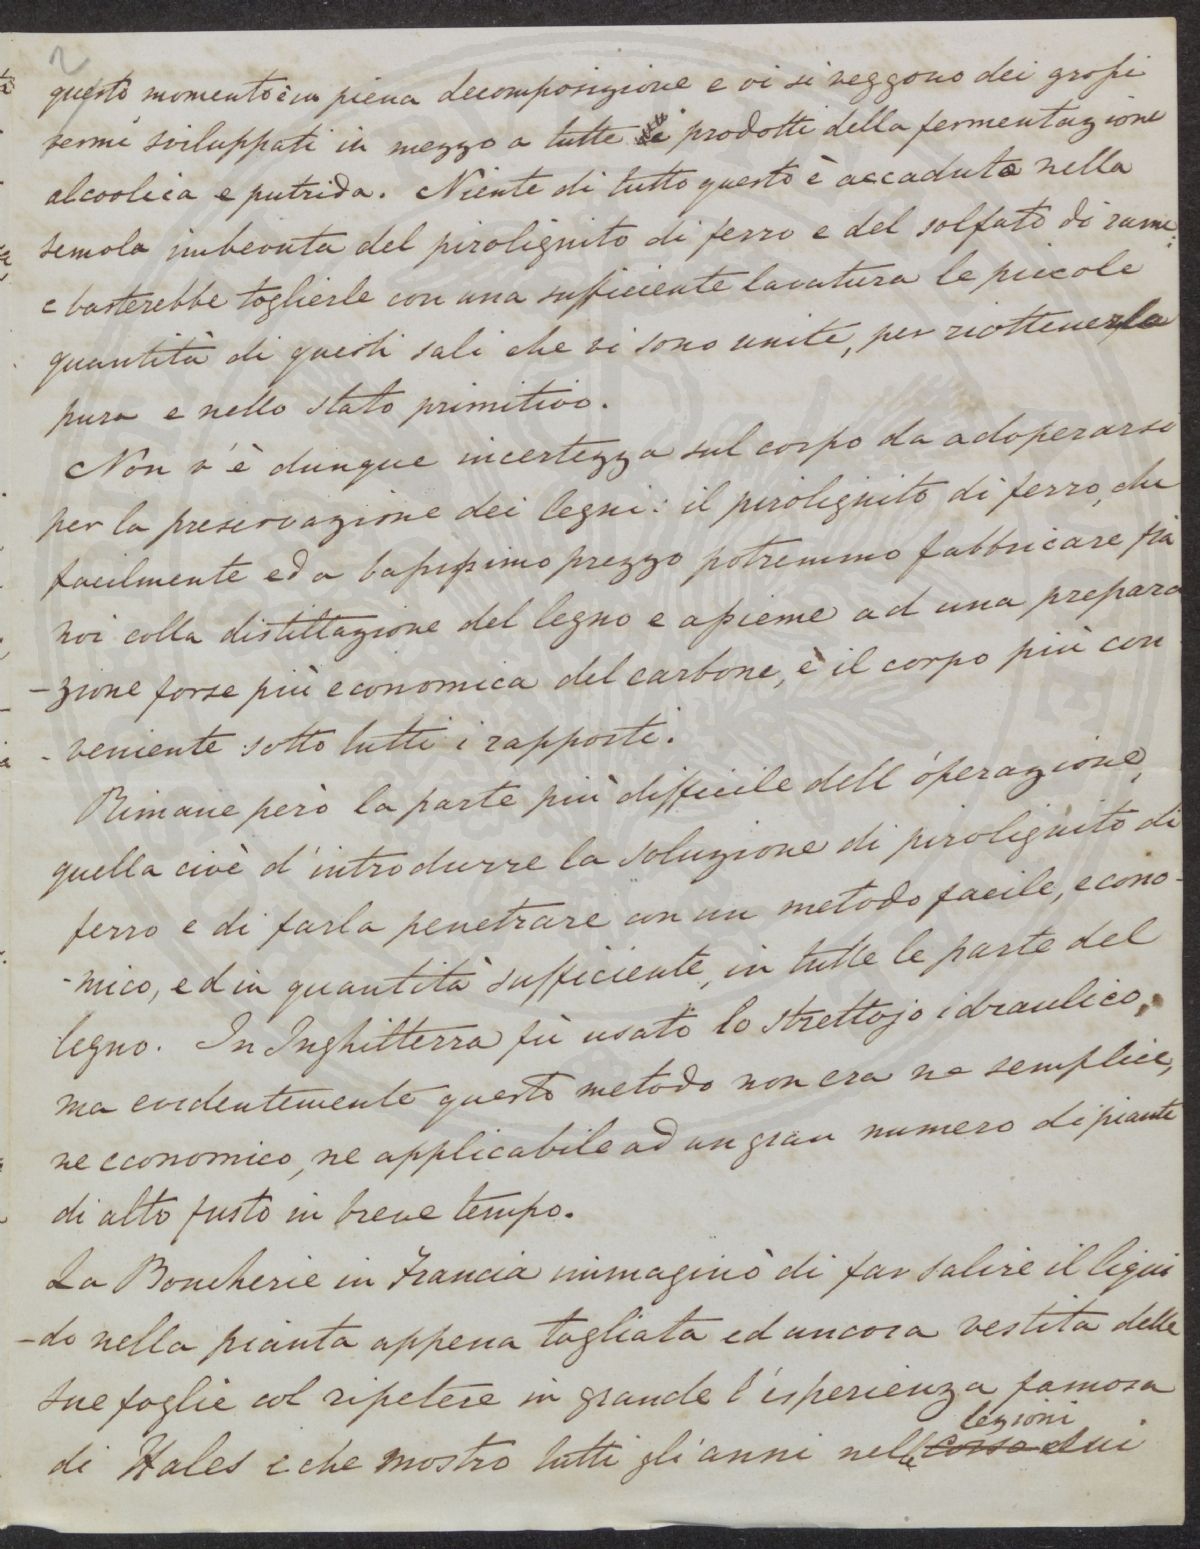 2
questo momento è in piena decomposizione e vi si veggono dei grossi
vermi sviluppati in mezzo a tutte i prodotti della fermentazione
alcoolica e putrida. Niente di tutto questo è accaduto nella
semola imbevuta del pirolignito di ferro e del solfato di rame;
e basterebbe toglierle con una sufficiente lavatura le piccole
quantità di questi sali che vi sono unite, per riottenerla
pura e nello stato primitivo.
Non v'è dunque incertezza sul corpo da adoperarsi
per la preservazione dei legni: il pirolignito di ferro, che
facilmente ed a bassissimo prezzo potremmo fabbricare fra
noi colla distillazione del legno e assieme ad una prepara
-zione forse più economica del carbone, è il corpo più con
-veniente sotto tutti i rapporti.
Rimane però la parte più difficile dell'operazione,
quella cioè d'introdurre la soluzione di pirolignito di
ferro e di farla penetrare con un metodo facile, econo-
-mico, ed in quantità sufficiente, in tutte le parte del
legno. In Inghilterra fù usato lo strettojo idraulico,
ma evidentemente questo metodo non era ne semplice,
ne economico, ne applicabile ad un gran numero di piante
di alto fusto in breve tempo.
La Boucherie in Francia immaginò di far salire il liqui
-do nella pianta appena tagliata ed ancora vestita delle
sue foglie col ripetere in grande l'esperienza famosa
lezioni
di Hales e che mostro tutti gli anni nelle corso dei